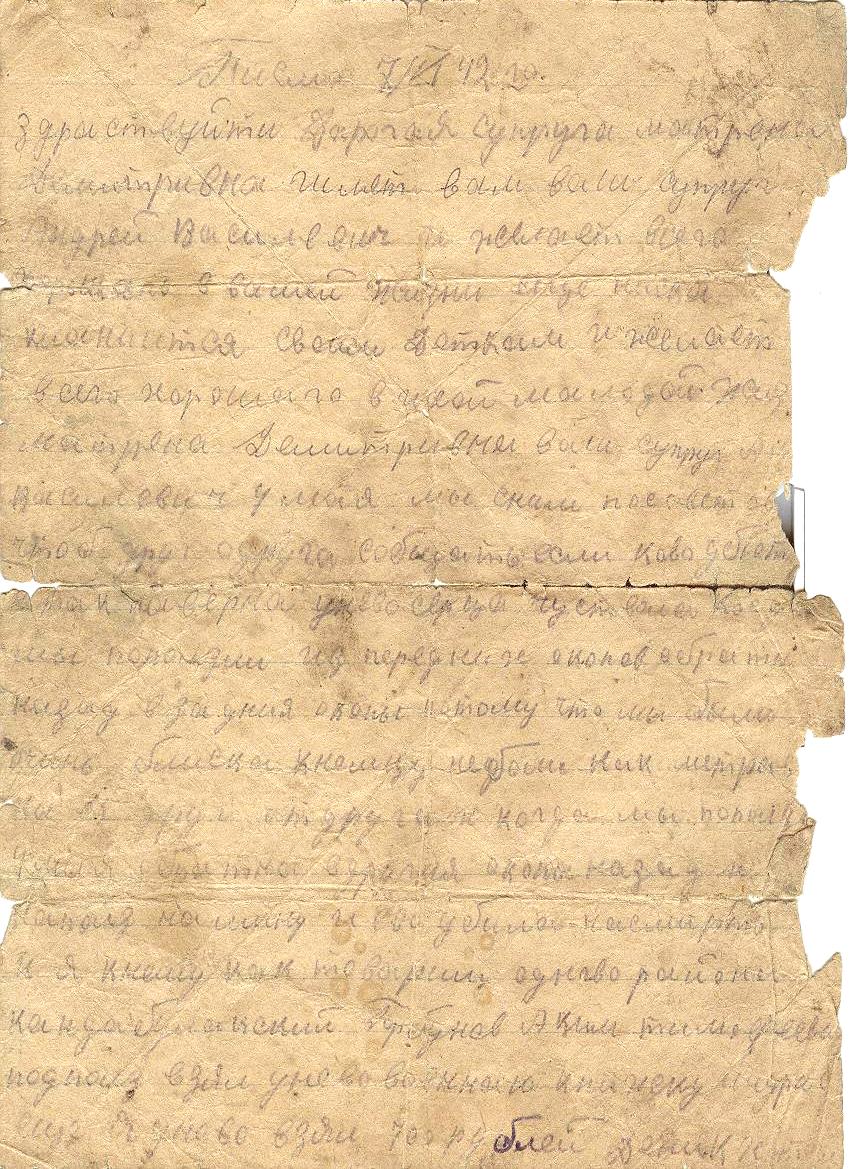 Писмо 7/VI 42 го.
Здраствуйти Дарогая супруга матрена
Демитривна шлет вам ваш супруг
Андрей Василевич и желает всего
хорошаго в вашей жизни еще ниска
кланяится своим Деткам и желает
всего хорошаго в ихой маладой жиз
матрена Демитривна ваш супруг
василович 4 мая мы сним посовет
чтоб друг одруга собщать если ково убют
и так наверна унево серца чуствола кагда
мы поползли из передних окопов обратн
назад в задния окопы потому что мы были
очень блиска кнемцу небole как метра
на друг отдруга и когда мы пополз
4 мая обратна вдругия окопы назад и
напалз на мину и ево убило насмирть
и я кнему как товарищ одново района
кандабулакский Горбунов Аким тимофеевич
подполз взял унево военную книжку и
еще я унево взял 700 рублей Деник